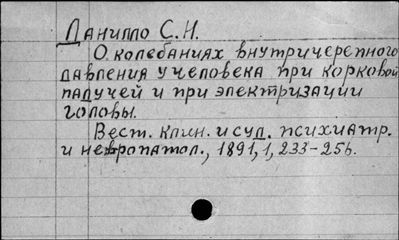 Данилло С.Н.
О колебаниях внутричерепного
давления у человека при корковой
падучей и при электризации
головы.
Вест. клин. и суд. психиатр.
и невропатол., 1891, 1, 233-256.